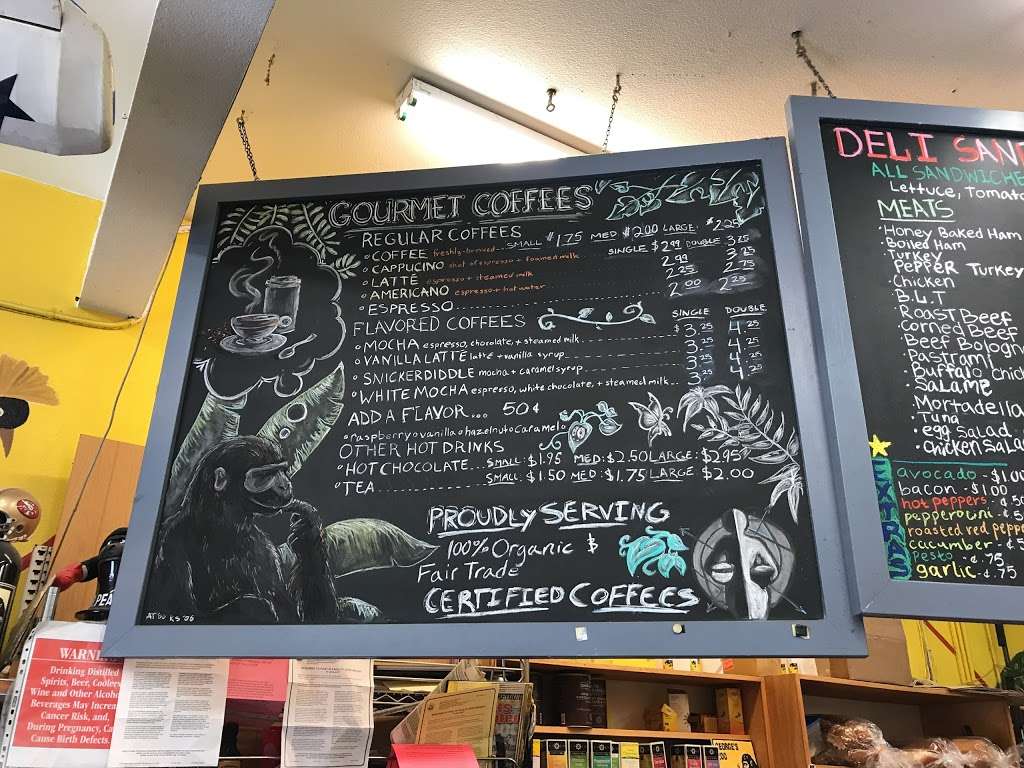 GOURMET COFFEES
REGULAR COFFEES
COFFEE freshly-brewed SMALL $1.75 MED $2.00 LARGE: $2.25
SINGLE DOUBLE
CAPPUCINO shot of espresso + foamed milk $2.99 3.25
LATTE espresso + steamed milk 2.99 3.25
AMERICANO espresso + hot water 2.25 2.75
ESPRESSO 2.00 2.25
FLAVORED COFFEES SINGLE DOUBLE
MOCHA espresso, chocolate, + steamed milk $3.25 4.25
VANILLA LATTE latte + vanilla syrup 3.25 4.25
SNICKERDIDDLE mocha + caramel syrup 3.25 4.25
WHITE MOCHA espresso, white chocolate, + steamed milk... 3.25 4.25
ADD A FLAVOR... 50¢
raspberry o vanilla o hazelnut o caramel
OTHER HOT DRINKS
HOT CHOCOLATE... SMALL: $1.95 MED: $2.50 LARGE: $2.95
TEA SMALL: $1.50 MED: $1.75 LARGE $2.00
PROUDLY SERVING
100% Organic &
Fair Trade
CERTIFIED COFFEES
DELI SAN
ALL SANDWICHE
Lettuce, Tomato
MEATS
Honey Baked Ham
Boiled Ham
Turkey
Pepper Turkey
Chicken
B.L.T
Roast Beef
Corned Beef
Beef Bologn
Pastrami
Buffalo Chic
Salame
Mortadella
Tuna
egg salad
Chicken Sala
EXTRAS
avocado - $1.00
bacon - $1.00
hot peppers - ¢.50
pepperocini - ¢.5
roasted red pepp
cucumber - ¢.5
pesto - ¢.75
garlic - ¢.75
WARNI
Drinking Distilled
Spirits, Beer, Coolers
Wine and Other Alcoho
Beverages May Increa
Cancer Risk, and,
During Pregnancy, Ca
Cause Birth Defects.
49ERS